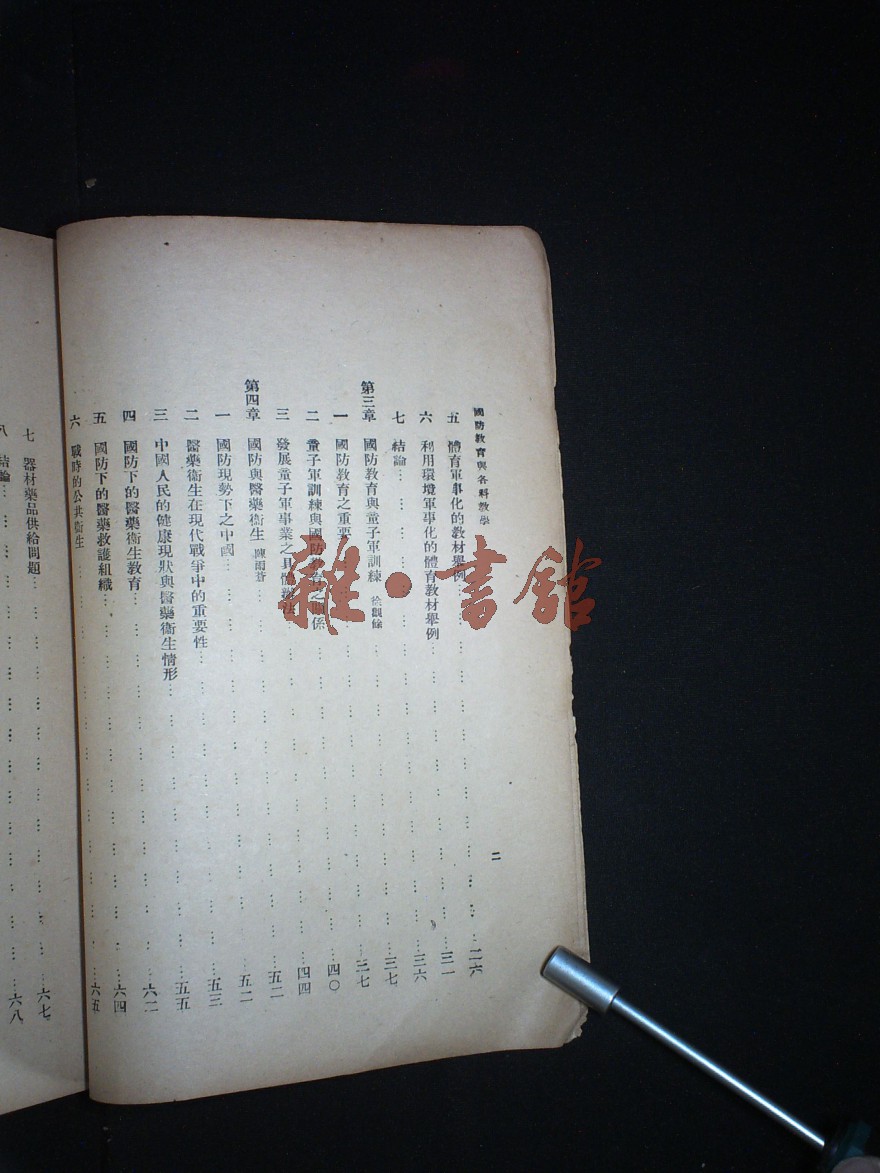 國防教育與各科教學
二
五 體育軍事化的教材舉例……二六
六 利用環境軍事化的體育教材舉例……三一
七 結論……三六
第三章 國防教育與童子軍訓練 徐觀餘……三七
一 國防教育之重要……三七
二 童子軍訓練與國防教育之關係……四〇
三 發展童子軍事業之具體辦法……四四
第四章 國防與醫藥衛生 陳雨蒼……五二
一 國防現勢下之中國……五二
二 醫藥衛生在現代戰爭中的重要性……五三
三 中國人民的健康現狀與醫藥衛生情形……五五
四 國防下的醫藥衛生教育……六二
五 國防下的醫藥救護組織……六四
六 戰時的公共衛生……六五
七 器材藥品供給問題……六七
八 結論……六八
雜·書館